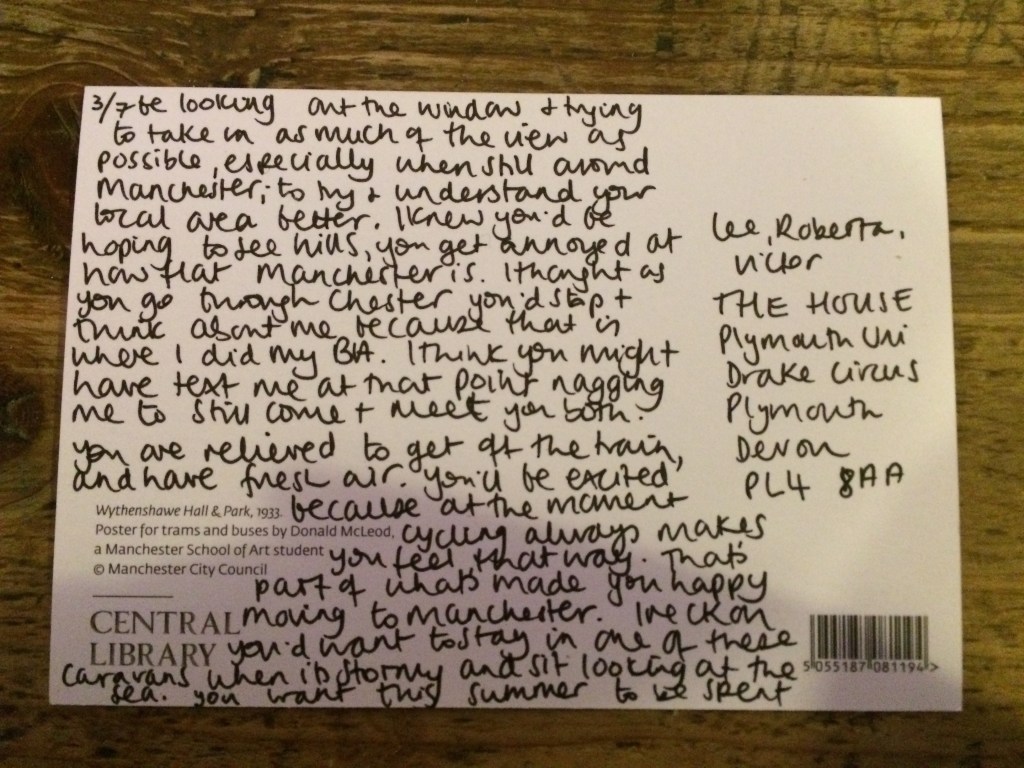 3/7 be looking out the window + trying
to take in as much of the view as
possible, especially when still around
Manchester, to try + understand your
local area better. I knew you'd be
hoping to see hills, you get annoyed at
how flat Manchester is. I thought as
you go through Chester you'd stop +
think about me because that is
where I did my BA. I think you might
have text me at that point nagging
me to still come + meet you both.
you are relieved to get off the train,
and have fresh air. you'll be excited
because at the moment
cycling always makes
you feel that way. That's
part of what's made you happy
moving to Manchester. I reckon
you'd want to stay in one of these
caravans when it's stormy and sit looking at the
sea. you want this summer to be spent
Lee, Roberta,
Victor
THE HOUSE
Plymouth Uni
Drake Circus
Plymouth
Devon
PL4 8AA
Wythenshawe Hall & Park, 1933.
Poster for trams and buses by Donald McLeod,
a Manchester School of Art student
© Manchester City Council
CENTRAL
LIBRARY
5 055187 081194 >